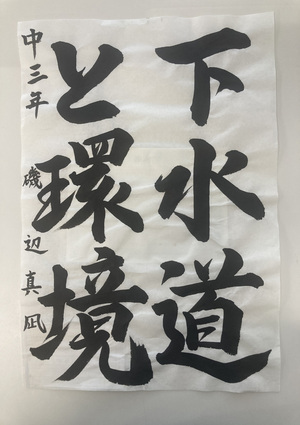 下水道
と環境
中三年 磯辺真凪